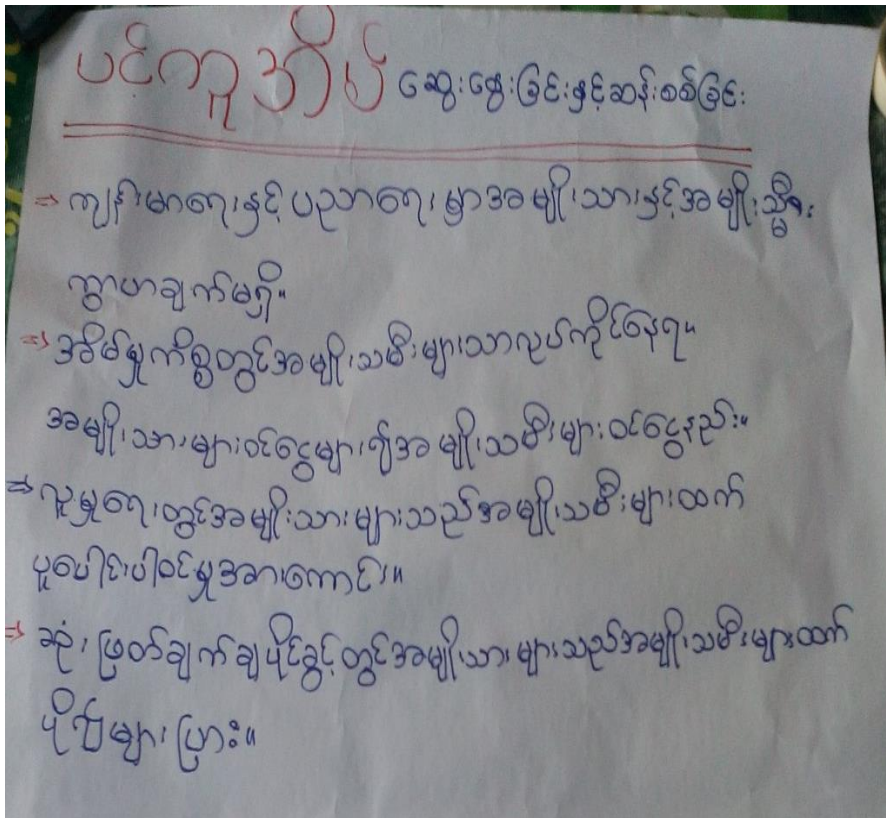 ပင်ကူအိမ် ဆွေးနွေးခြင်းနှင့်ဆန်းစစ်ခြင်း
⇒ ကျန်းမာရေးနှင့်ပညာရေးမှာအမျိုးသားနှင့်အမျိုးသ္မီး
ကွာဟချက်မရှိ။
⇒ အိမ်မှုကိစ္စတွင်အမျိုးသမီးများသာလုပ်ကိုင်နေရ။
အမျိုးသားများဝင်ငွေများ၍အမျိုးသမီးများဝင်ငွေနည်း။
⇒ လူမှုရေးတွင်အမျိုးသားများသည်အမျိုးသမီးများထက်
ပူပေါင်းပါဝင်မှုအားကောင်း။
⇒ ဆုံးဖြတ်ချက်ချပိုင်ခွင့်တွင်အမျိုးသားများသည်အမျိုးသမီးများထက်
ပို၍များပြား။